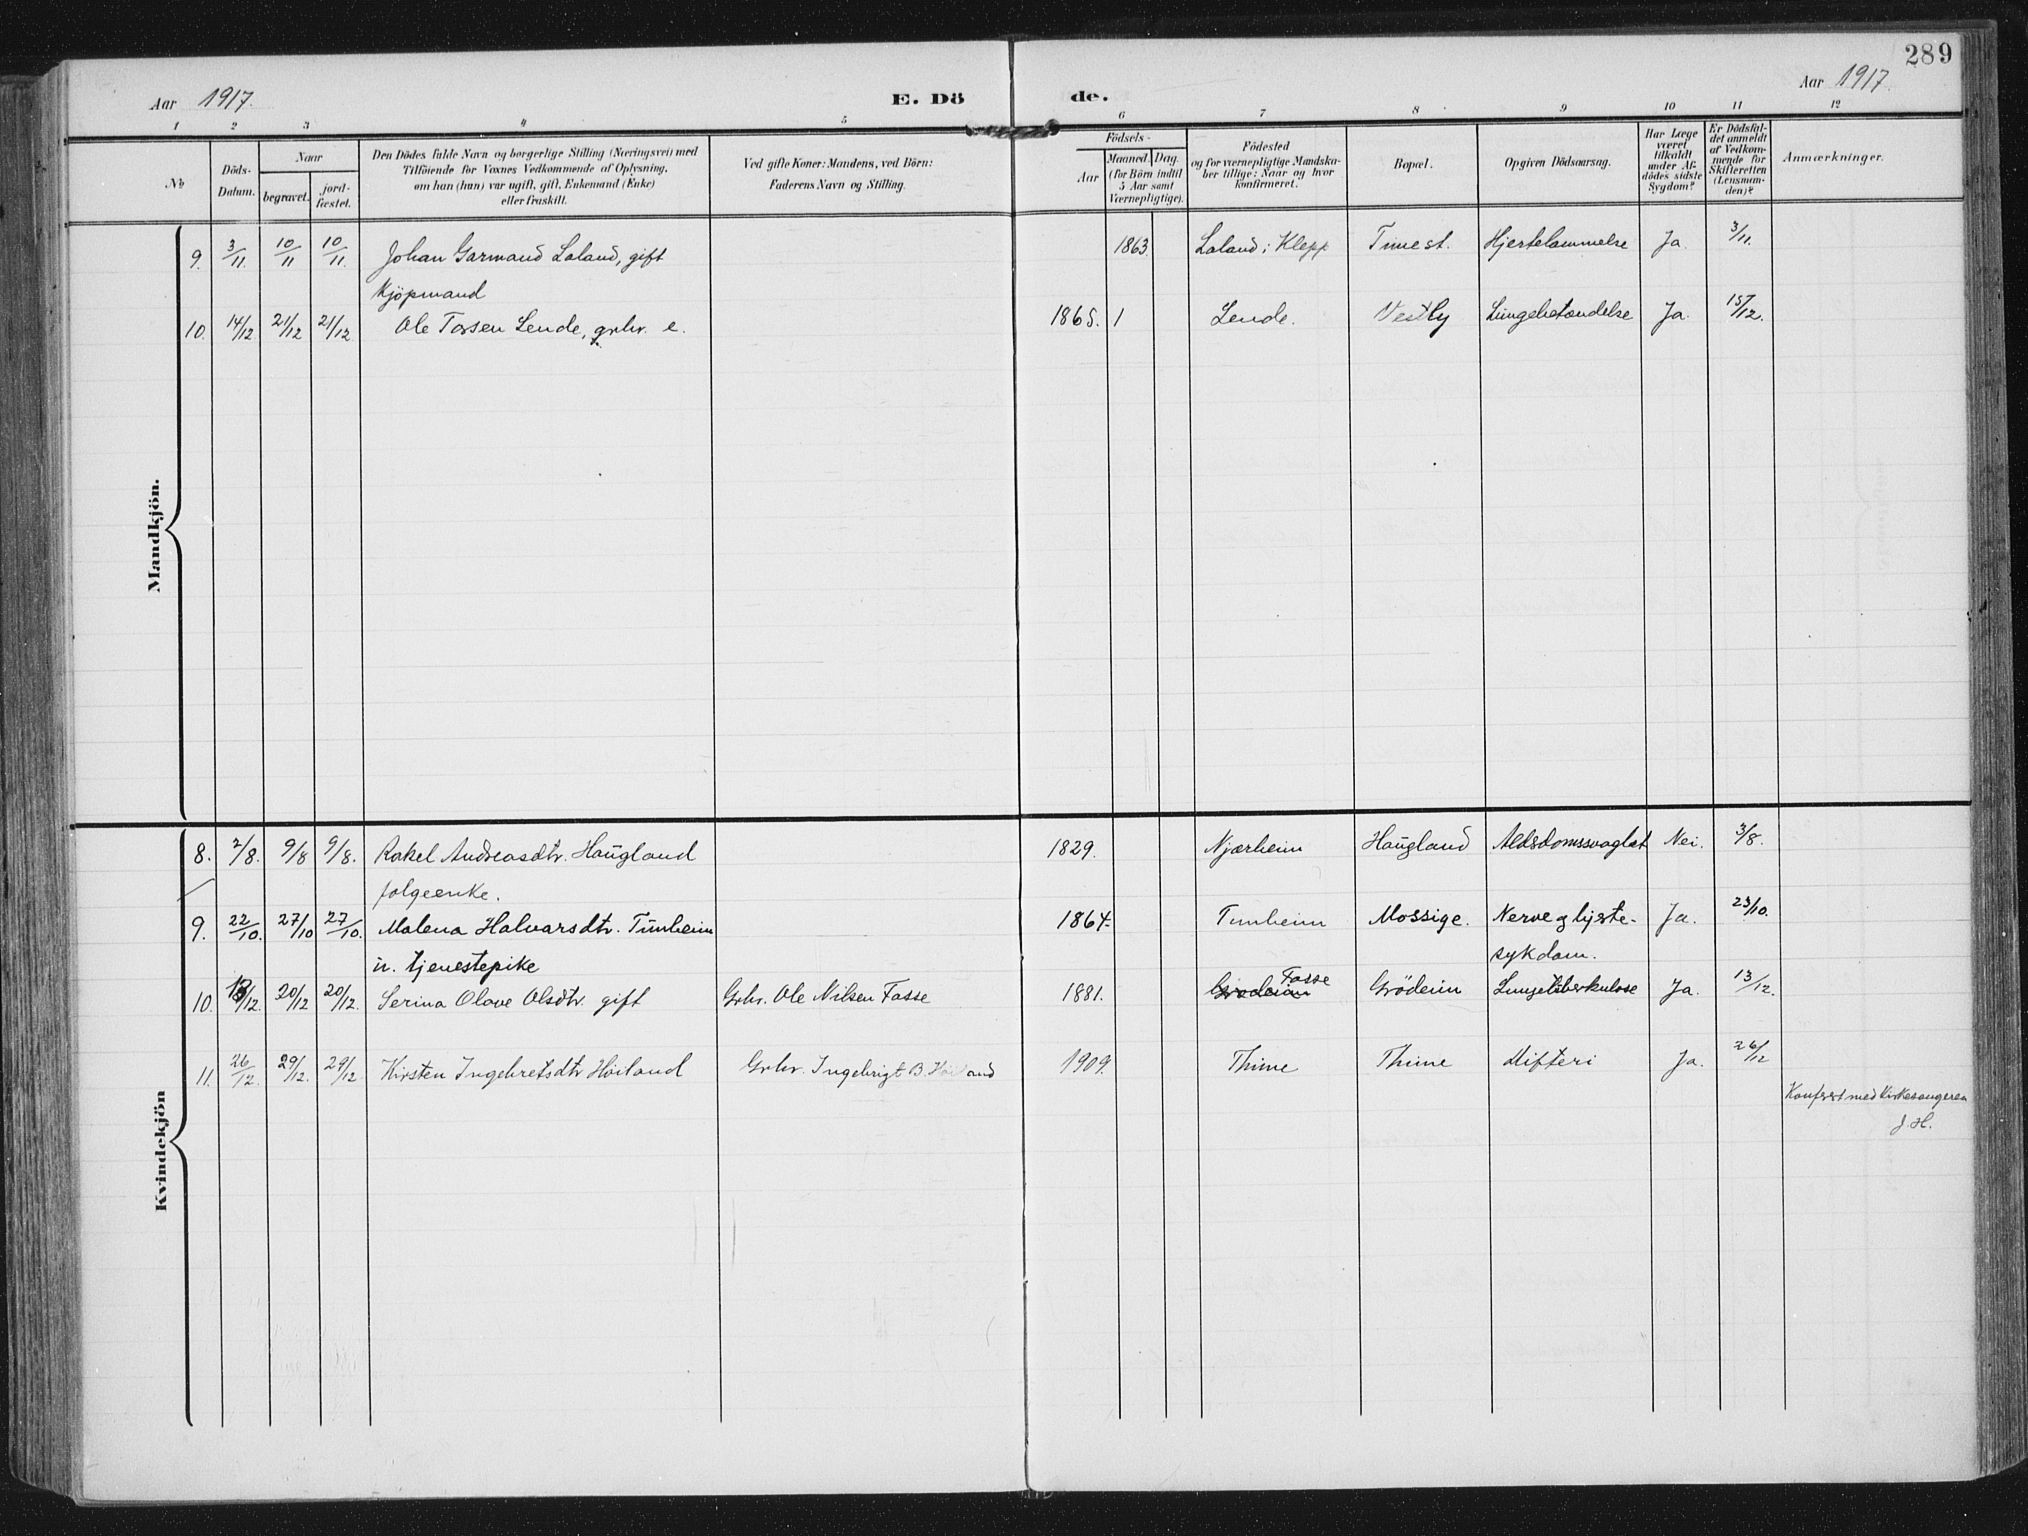 289
Aar 1917.
E. Dö
de.
Aar 1917.
1 2 3 4 5 6 7 8 9 10 11 12
No
Döds-
Datum.
Naar
begravet.
jord-
fæstet.
Den Dödes fulde Navn og borgerlige Stilling (Næringsvei) med
Tilföiende for Voxnes Vedkommende af Oplysning,
om han (hun) var ugift, gift, Enkemand (Enke)
eller fraskilt.
Ved gifte Koner: Mandens, ved Börn:
Faderens Navn og Stilling.
Födsels-
Aar
Maaned. Dag.
(for Börn indtil
5 Aar samt
Værnepligtige).
Födested
og for værnepligtige Mandska-
ber tillige: Naar og hvor
konfirmeret.
Bopæl.
Opgiven Dödsaarsag.
Har Læge
været
tilkaldt
under Af-
dödes sidste
Sygdom?
Er Dödsfal-
det anmeldt
af Vedkom-
mende for
Skifteretten
(Lensman-
den)?
Anmærkninger.
Mandkjön.
9. 3/11. 10/11 10/11. Johan Garmand Laland, gift 1863. Laland i Klepp Time st. Hjertelammelse Ja. 3/11.
Kjöpmand
10. 14/12. 21/12 21/12 Ole Torsen Lende, grbr. e. 1865. 1 Lende. Vestly Lungebetændelse Ja. 15/12.
Kvindekjön
8. 2/8. 9/8 9/8. Rakel Andreasdtr. Haugland 1829. Njærheim Haugland Aldsdomssvaghet Nei. 3/8.
folgeenke.
9. 22/10. 27/10 27/10. Malena Halvarsdtr. Tunheim 1864. Tunheim Mossige. Nerve og hjerte- Ja. 23/10.
u. tjenestepike
sykdom.
10. 13/12. 20/12 20/12. Serina Olave Olsdtr. gift Grbr. Ole Nilsen Fosse 1881. Grödeim Fosse Grödeim Lungetuberkulose Ja. 13/12.
11. 26/12. 29/12. 29/12 Kirsten Ingebretsdtr Höiland Grbr. Ingebrigt B. Höiland 1909. Thime Thime Difteri Ja. 26/12
Konferert med Kirkesangeren
J. H.